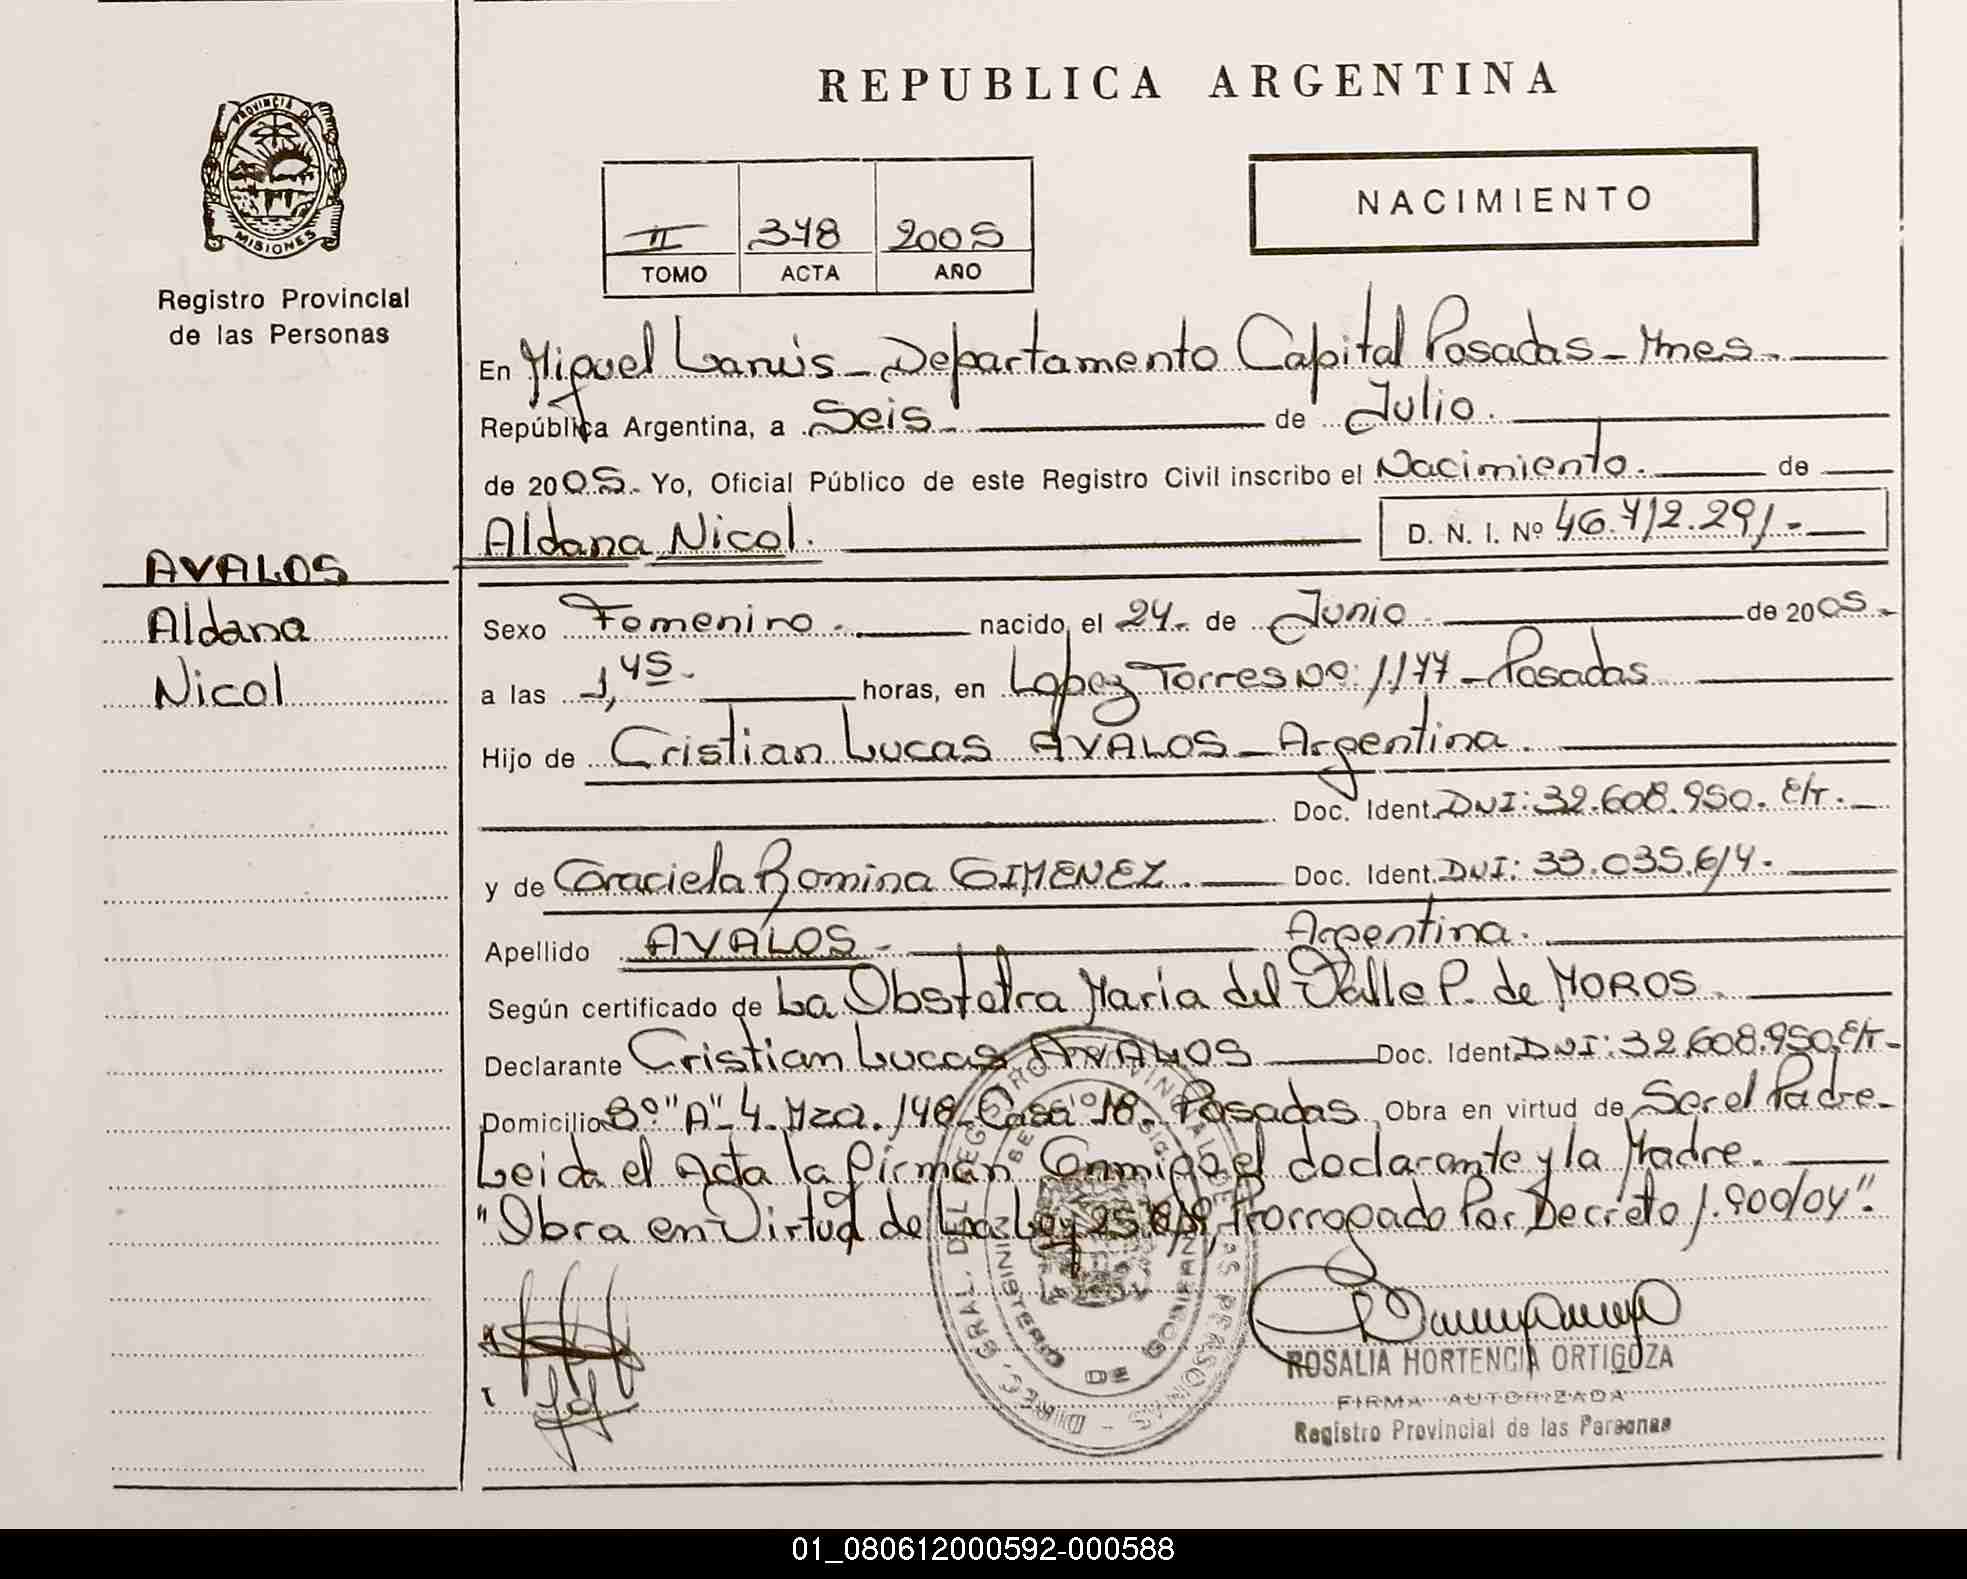 REPUBLICA ARGENTINA
PROVINCIA DE
MISIONES
Registro Provincial
de las Personas
II 348 2005
TOMO ACTA AÑO
NACIMIENTO
En Miguel Lanús - Departamento Capital Posadas - Mnes.
República Argentina, a Seis de Julio.
de 2005. Yo, Oficial Público de este Registro Civil inscribo el Nacimiento. de
Aldana Nicol. D. N. I. Nº 46.412.291.-
AVALOS
Aldana
Nicol
Sexo Femenino. nacido el 24. de Junio de 2005.-
a las 1,45. horas, en Lopez Torres Nº: 1177 - Posadas
Hijo de Cristian Lucas AVALOS - Argentina.
Doc. Ident. DNI: 32.608.950. E/T.
y de Graciela Romina GIMENEZ. Doc. Ident. DNI: 33.035.614.
Apellido AVALOS. Argentina.
Según certificado de La Obstetra María del Valle P. de MOROS.
Declarante Cristian Lucas AVALOS Doc. Ident. DNI: 32.608.950. E/T.
Domicilio Bº "A"-4. Mza. 148. Casa 18. Posadas Obra en virtud de Ser el Padre.
Leida el Acta la firman Conmigo el declarante y la Madre.
"Obra en Virtud de La Ley 25.819, Prorrogado Por Decreto 1.900/04".
DIREC. GRAL. DEL REGISTRO PROVINCIAL DE LAS PERSONAS -
MINISTERIO DE GOBIERNO
ROSALIA HORTENCIA ORTIGOZA
FIRMA AUTORIZADA
Registro Provincial de las Personas
01_080612000592-000588